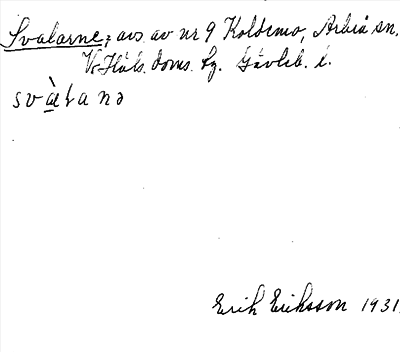 Svalarne; avs. av nr 9 Koldemo, Arbrå sn.
V. Häls. doms. fg. Gävleb. l.
svὰlanə
Erik Eriksson 1931.